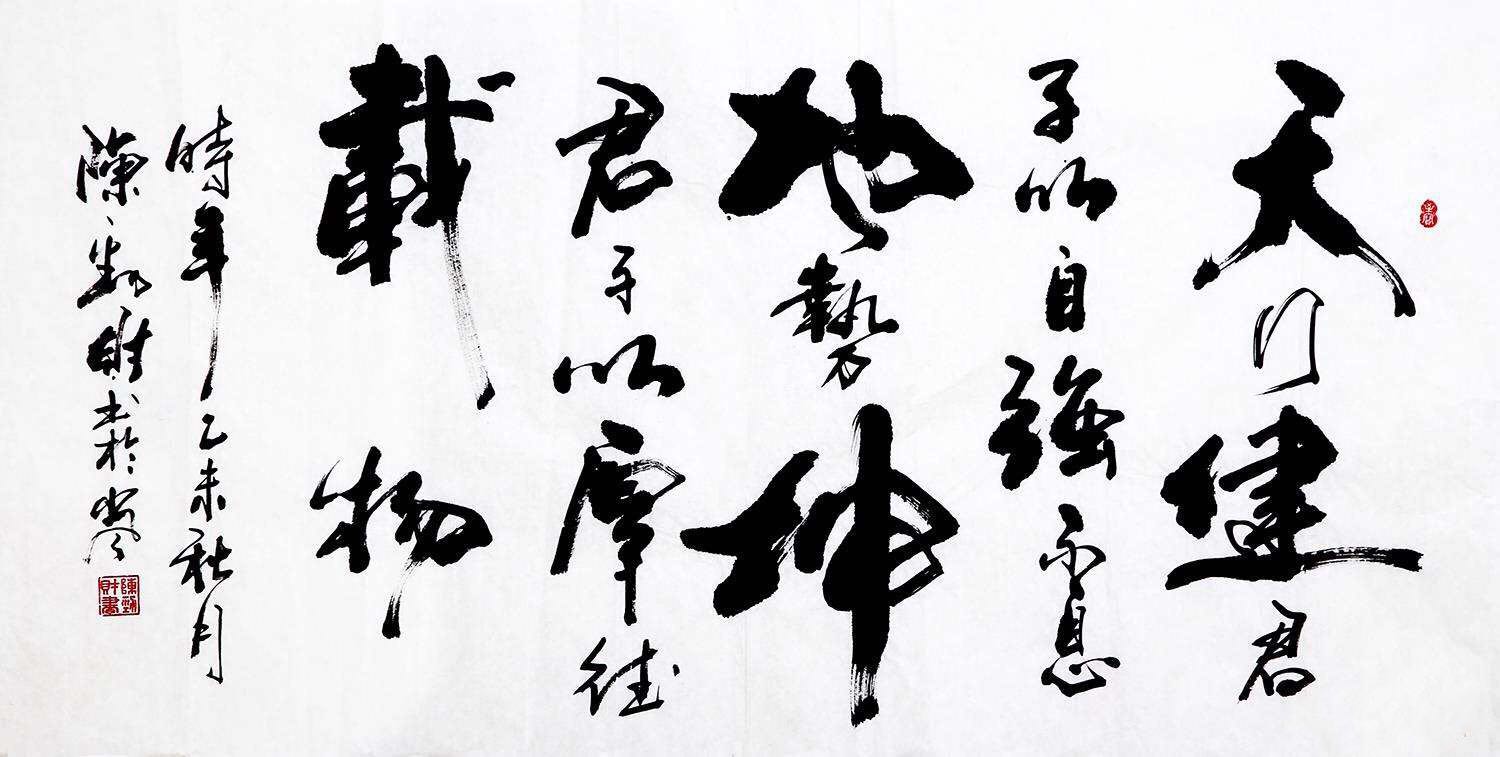 天行健君
子以自強不息
地勢坤
君子以厚德
載物
時年乙未秋月
陳勁財書於
陳勁財書